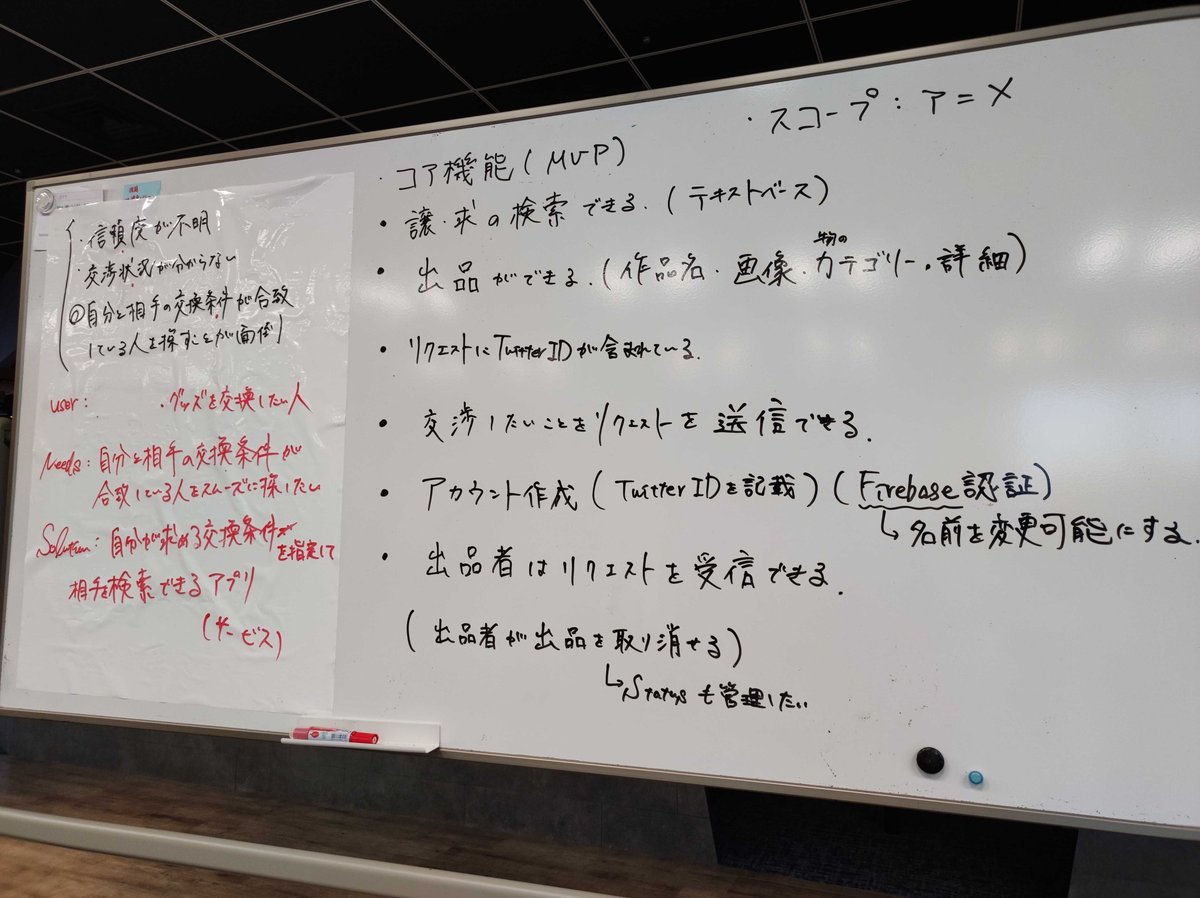 ・信頼度が不明
・交渉状況が分からない
◎自分と相手の交換条件が合致
している人を探すことが面倒
user: ・グッズを交換したい人
Needs: 自分と相手の交換条件が
合致している人をスムーズに探したい
Solution: 自分が求める交換条件を指定して
相手を検索できるアプリ
(サービス)
・スコープ: アニメ
・コア機能(MVP)
・譲・求の検索できる.(テキストベース)
・出品ができる.(作品名・画像・物のカテゴリー・詳細)
・リクエストにTwitterIDが含まれている.
・交渉したいことをリクエストを送信できる.
・アカウント作成(TwitterIDを記載)(Firebase認証)
↳名前を変更可能にする.
・出品者はリクエストを受信できる.
(出品者が出品を取り消せる)
↳Statusも管理したい